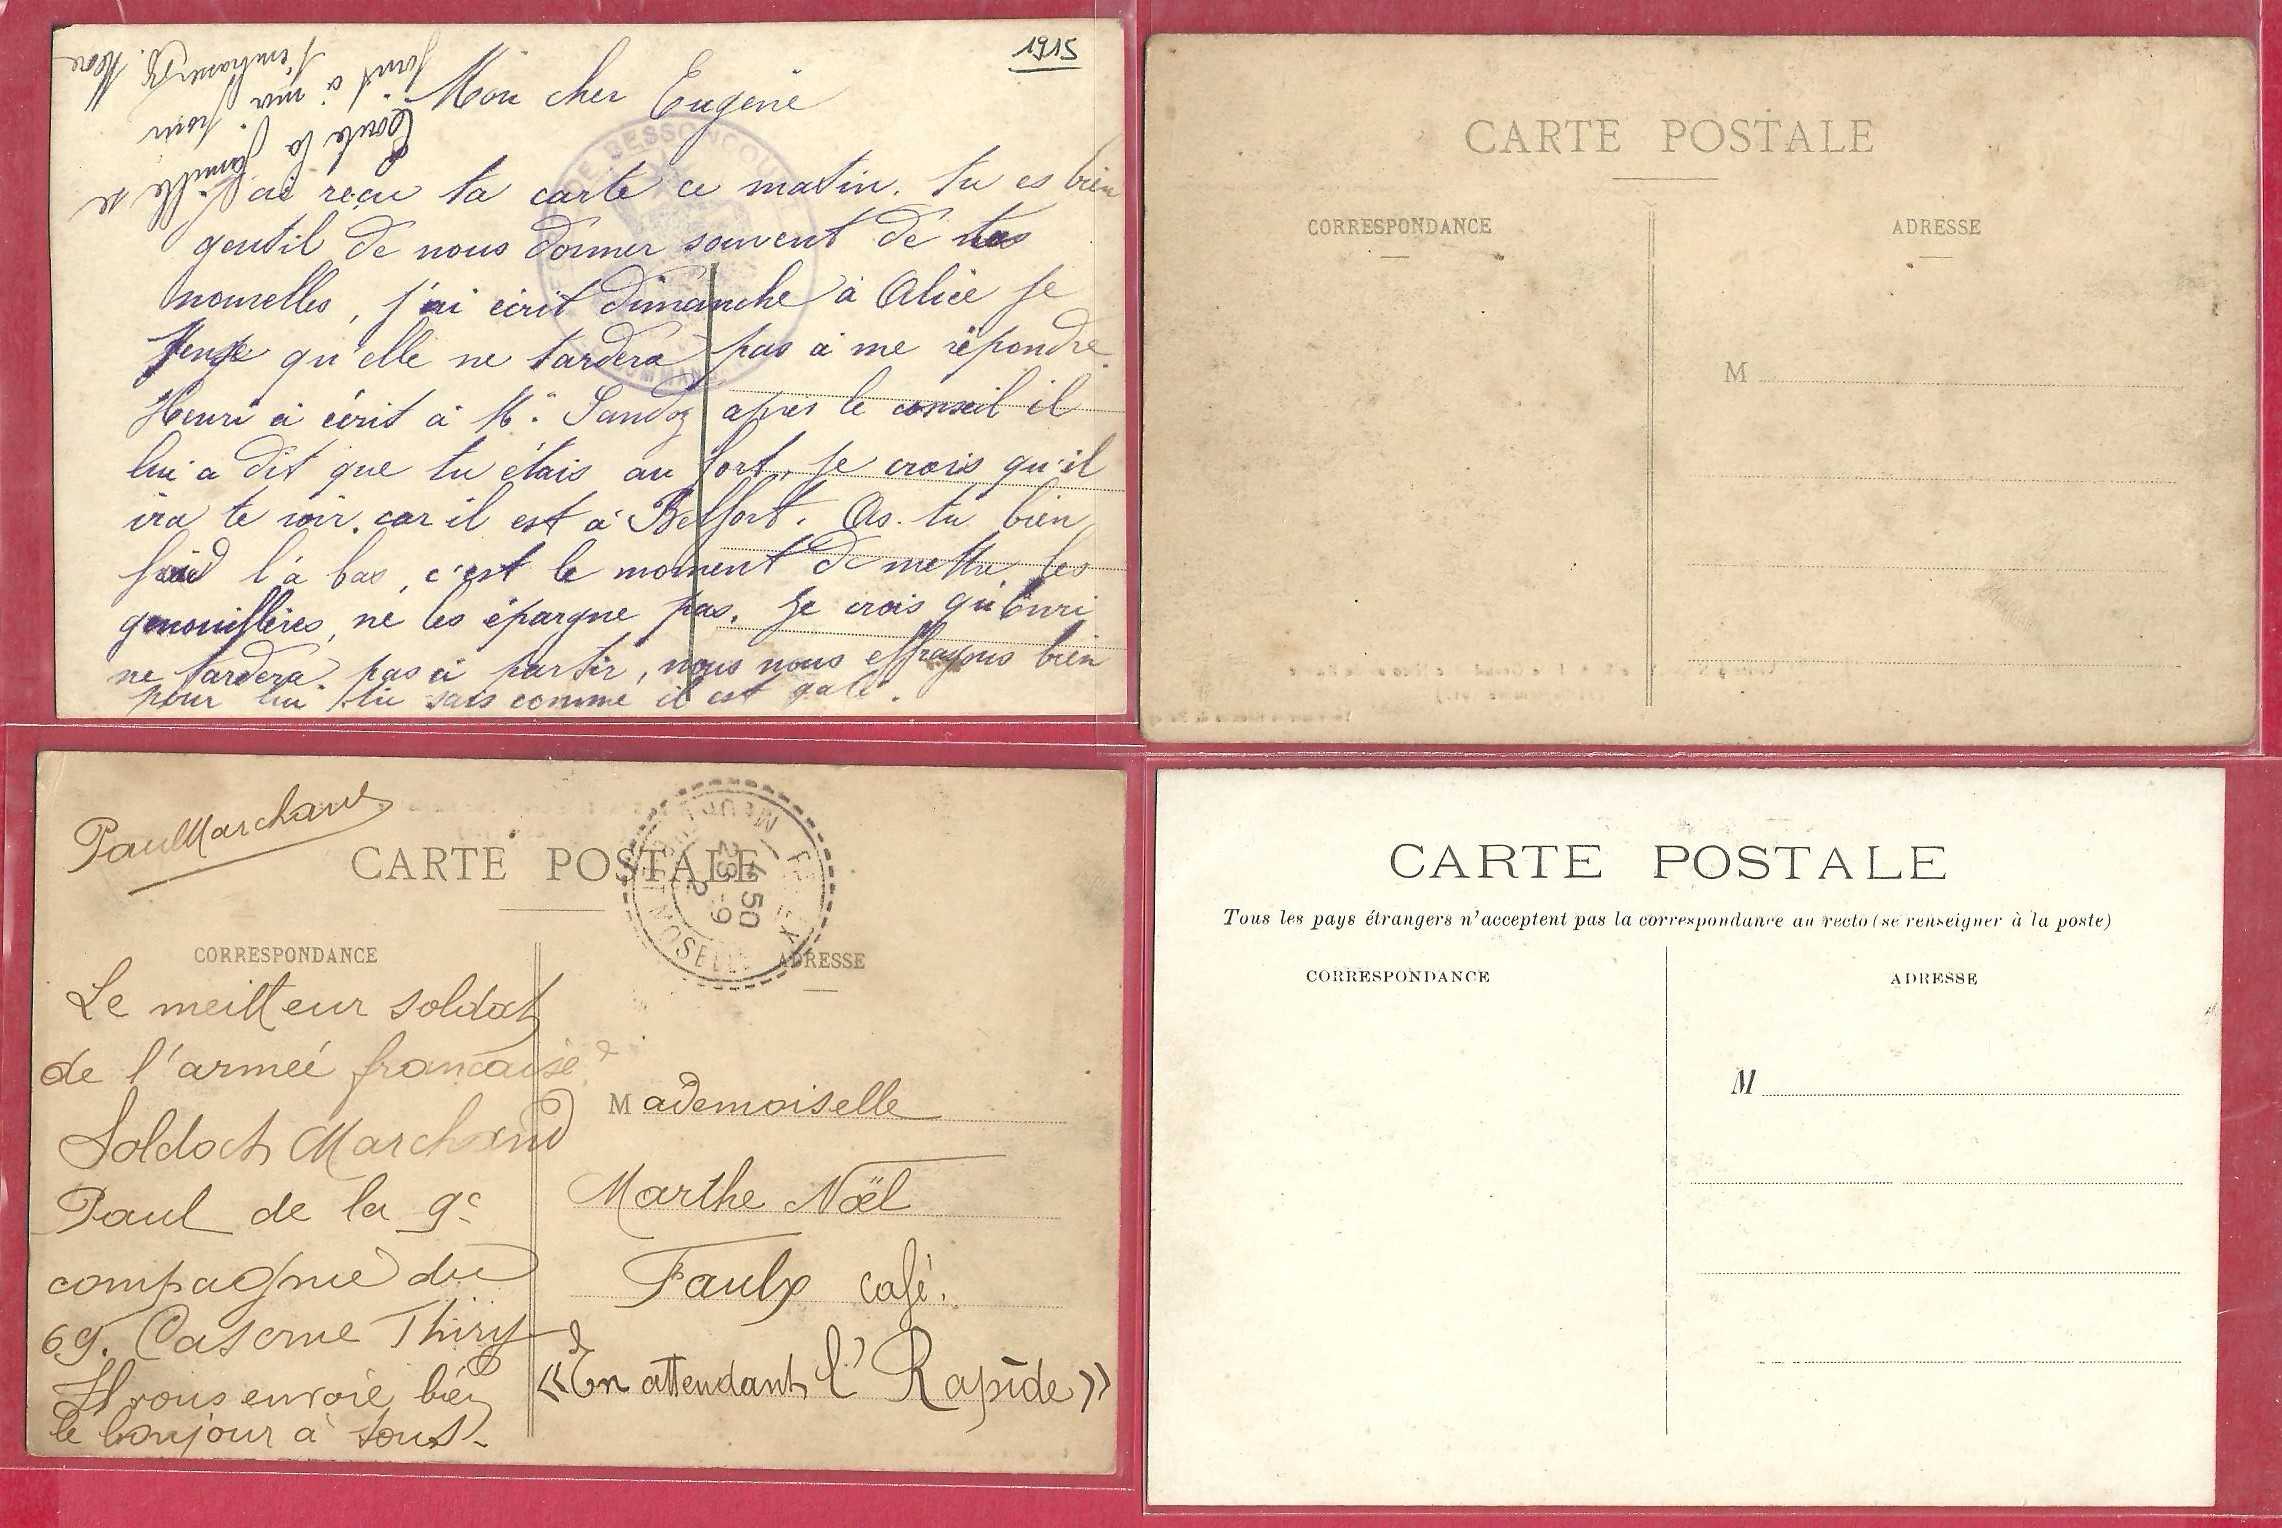 1915
Mon cher Eugène
J'ai reçu ta carte ce matin. tu es bien
gentil de nous donner souvent de tes
nouvelles, j'ai écrit dimanche à Alice je
pense qu'elle ne tardera pas à me répondre.
Henri a écrit à Mr Sandoz après le conseil il
lui a dit que tu étais au fort, je crois qu'il
ira te voir. car il est à Belfort. As-tu bien
froid l'à bas, c'est le moment de mettre les
genouillères, ne les épargne pas. Je crois qu'Henri
ne tardera pas à partir, nous nous effrayons bien
pour lui. tu sais comme il est gâté.
Toute la famille se
joint à moi pour
t'embrasser
BESSONCOURT
COMMAND
CARTE POSTALE
CORRESPONDANCE
ADRESSE
M
Paul Marchand
CARTE POSTALE
CORRESPONDANCE
ADRESSE
4 50
23 - 9
MOSELLE
Le meilleur soldat
de l'armée française
Soldat Marchand
Paul de la 9e
compagnie du
69. Caserne Thiry
Il vous envoie bien
le bonjour à tous.
Mademoiselle
Marthe Noël
Faulx café.
«En attendant l'Rapide»
CARTE POSTALE
Tous les pays étrangers n'acceptent pas la correspondance au recto (se renseigner à la poste)
CORRESPONDANCE
ADRESSE
M